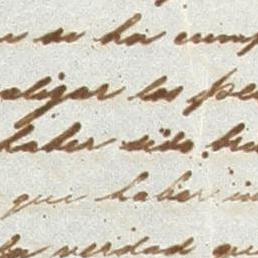 se ha cump
aligar las pe
haber sido bu
que haber in
la verdad que